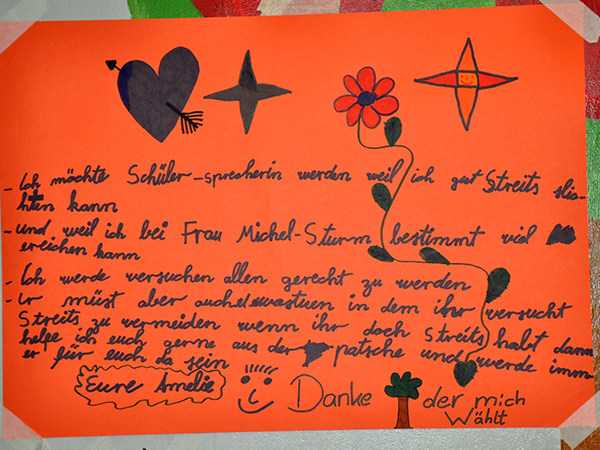 - Ich möchte Schüler-sprecherin werden weil ich gut Streits slic-
hten kann
- und weil ich bei Frau Michel-Sturm bestimmt viel
ereichen kann
- Ich werde versuchen allen gerecht zu werden
- ir müst aber auch etwas tuen in dem ihr versucht
Streits zu vermeiden wenn ihr doch Streits habt dann
helfe ich euch gerne aus der patsche und werde imm-
er für euch da sein
Eure Amelie Danke der mich
Wählt